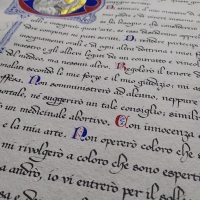 per
di
e la
decreto. Pa
orali, e di ogni altra dottrina i
maestro e gli allievi legati da un contratto e vincol
del medico, ma nessun altro. Regolerò il tenore de
malati secondo le mie forze e il mio giudizio; mi
offesa. Non somministrerò ad alcuno, neppure
mortale, né suggerirò un tale consiglio; similm
un medicinale abortivo. Con innocenza
e la mia arte. Non opererò coloro che
mi rivolgerò a coloro che sono esperti
sa andrò, io vi entrerò per il sollie